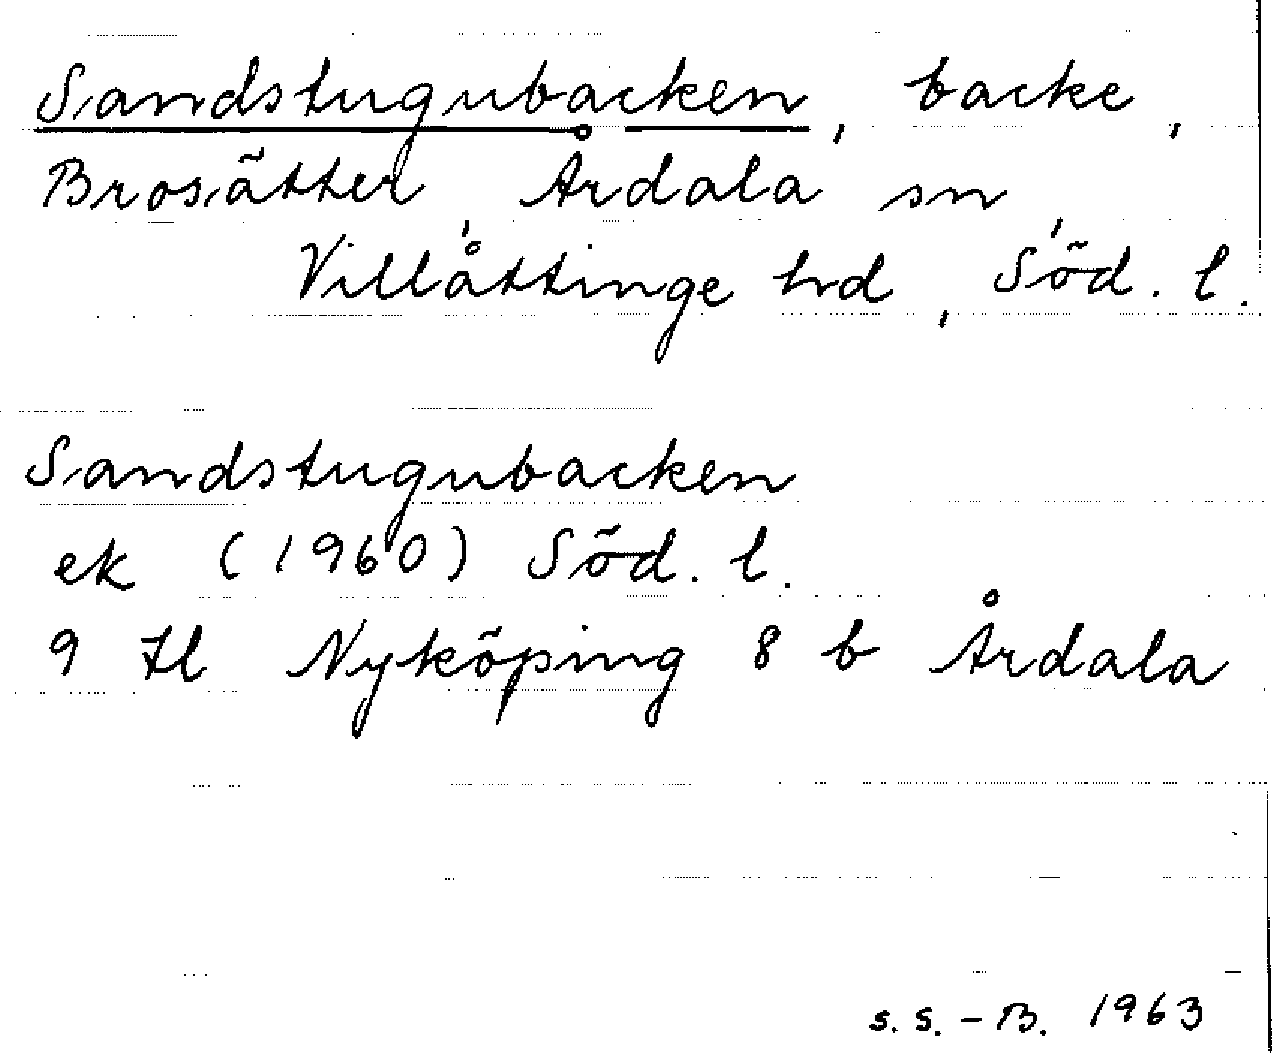 Sandstugubacken, backe,
Brosätter, Årdala sn,
Villåttinge hd, Söd. l.
Sandstugubacken
ek (1960) Söd. l.
9 Hl Nyköping 8 b Årdala
S. S. - B. 1963